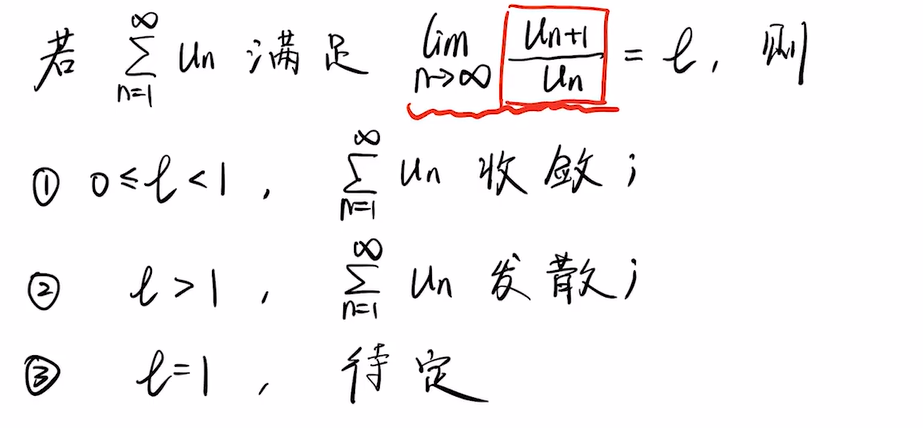 若 ∑_{n=1}^{∞} Un 满足 lim_{n→∞} U_{n+1}/U_n = ℓ, 则
① 0≤ℓ<1, ∑_{n=1}^{∞} Un 收敛;
② ℓ>1, ∑_{n=1}^{∞} Un 发散;
③ ℓ=1, 待定